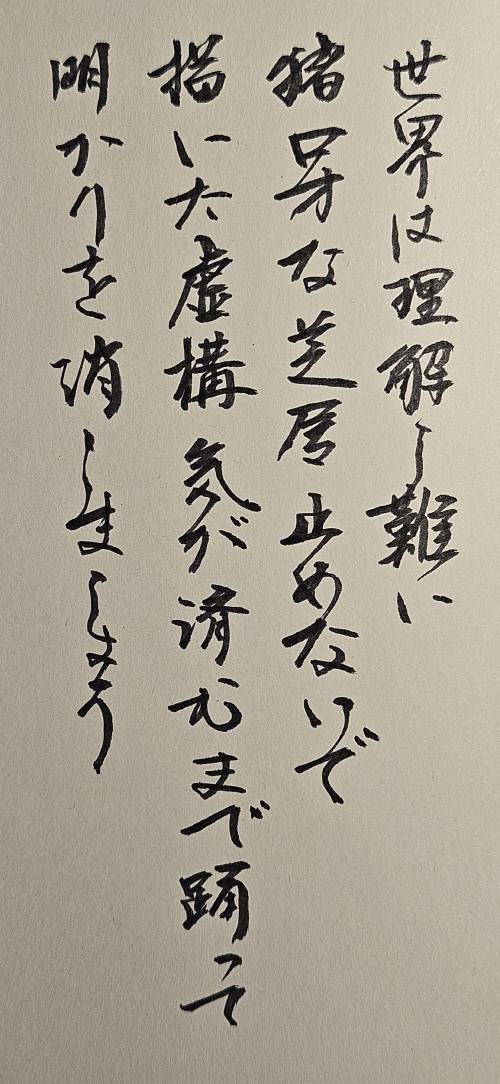 世界は理解し難い
猪口才な芝居 止めないで
描いた虚構 気が済むまで踊って
明かりを消しましょう